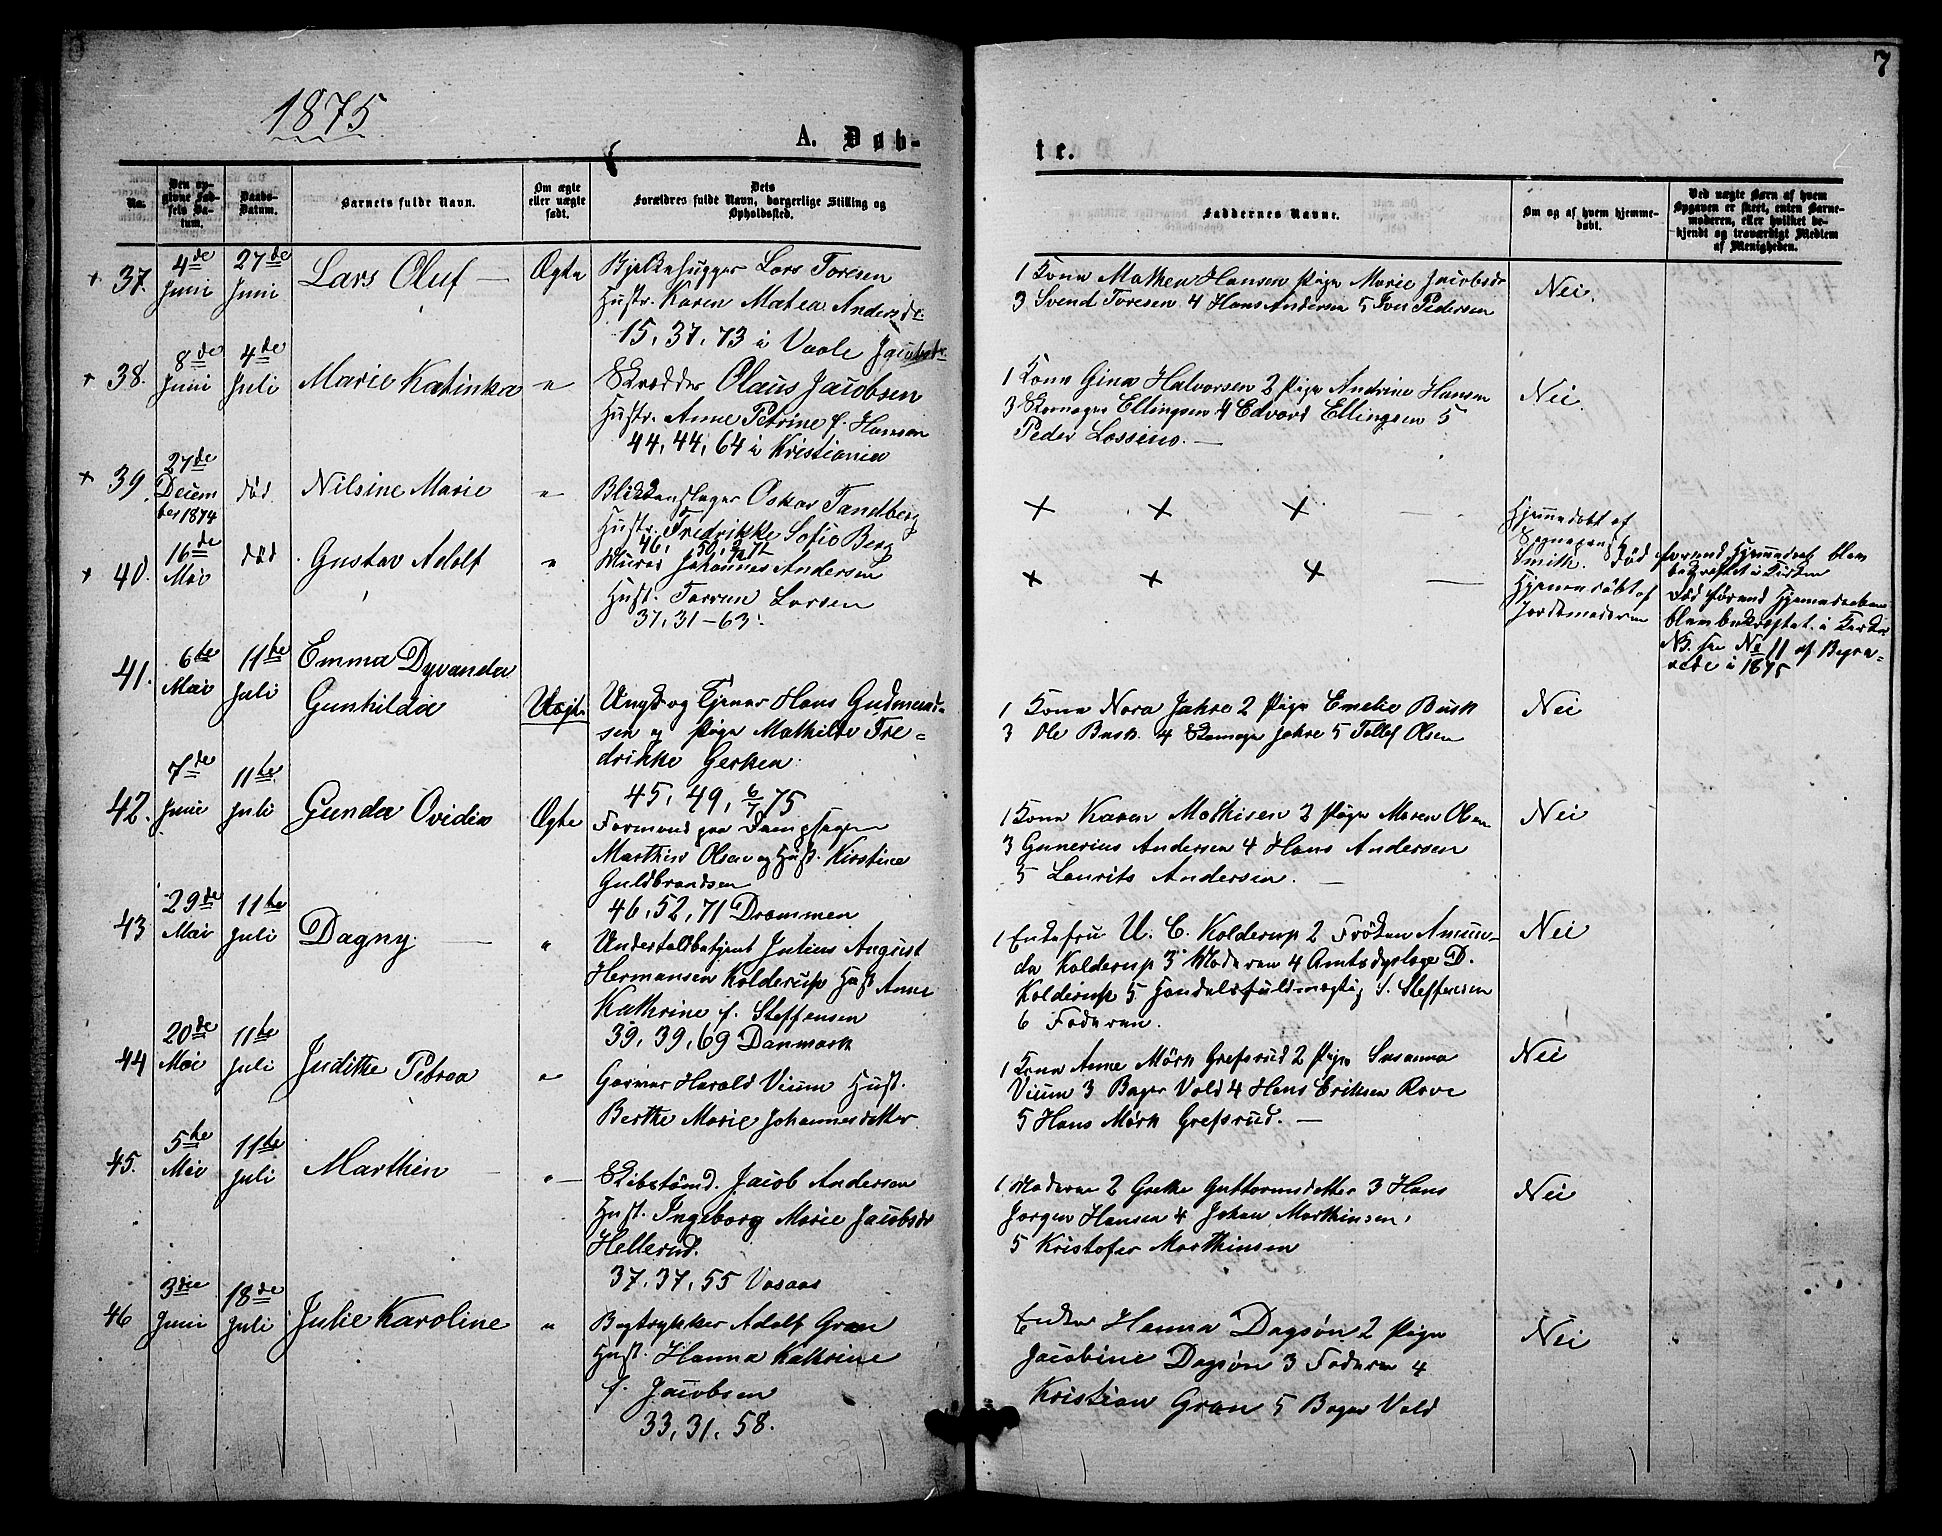 7
1875
A. Døb-
te.
No.
Den opgivne Fødsels Datum.
Daabs-Datum.
Barnets fulde Navn.
Om ægte eller uægte født.
Dets Forældres fulde Navn, borgerlige Stilling og Opholdssted.
Faddernes Navne.
Om og af hvem hjemmedøbt.
Ved uægte Børn af hvem Opgaven er skeet, enten Barnemoderen, eller hvilket bekjendt og troværdigt Medlem af Menigheden.
+ 37. 4de Juni 27de Juni Lars Oluf — Ægte
Bjelkehugger Lars Toresen
Hustr. Karen Matea Andersdr.
15, 37, 73 i Vaale Jacobsdr
1 Kona Mathea Hansen Pige Marie Jacobsdr
3 Svend Toresen 4 Hans Andersen 5 Iver Pedersen
Nei.
+ 38. 8de Juni 4de Juli Marie Katinka "
Skrædder Olaus Jacobsen
Hustr. Anne Petrine f. Hansen
44, 44, 64 i Kristiania
1 Kona Gina Halvorsen 2 Pige Andrine Hansen
3 Skomager Ellingsen 4 Edvard Ellingsen 5
Peder Lossius. —
Nei.
+ 39. 27de December 1874 død Nilsine Marie "
Blikkenslager Oskar Tandberg
Hustr. Fredrikke Sofie Berg
46, 50, 2/71
+ + + —
Hjemmedøbt af
Sognepræst
Smith. Død forend Hjemmedaab blev
bekræftet i Kirken
+ 40. 16de Mai død Gustav Adolf "
Murer Johannes Andersen
Hust. Torrun Larsen
37, 31 - 63.
+ + + —
Hjemmedøbt af
Jordemoderen
Død forend Hjemmedaaben
blev bekræftet i Kirken
NB. see No 11 af Begra-
vede i 1875
41. 6te Mai 11te Juli Emma Dyvanda
Gunhilda Uægte
Ungk. og Tjener Hans Gudmund-
sen og Pige Mathilde Fre-
drikke Gerken.
45, 49, 6/7 75
1 Kona Nora Jahre 2 Pige Emelie Busk
3 Ole Busk. 4 Skomager Jahre 5 Tollef Olsen
Nei
42. 7de Juni 11te Juli Gunda Ovidia Ægte
Formand paa Dampsagen
Marthin Olsen og Hust. Kirstine
Guldbrandsen
46, 52, 71 Drammen
1 Kona Karen Mathisen 2 Pige Maren Olsen
3 Gunerius Andersen 4 Hans Andersen
5 Laurits Andersen. —
Nei
43 29de Mai 11te Juli Dagny. — "
Undertoldbetjent Julius August
Hermansen Kolderup Hust Anne
Kathrine f. Steffensen
39, 39, 69 Danmark
1 Enkefru U. C. Kolderup 2 Frøken Amun-
da Kolderup 3 Moderen 4 Amtsdyrlæge D.
Kolderup 5 Handelsfuldmægtig S. Steffensen
6 Faderen.
Nei
44 20de Mai 11te Juli Judithe Petrea "
Garver Harald Vium Hust.
Berthe Marie Johannesdatter
1 Kona Anne Mørk Grefsrud 2 Pige Susanna
Vium 3 Bager Vold 4 Hans Eriksen Rove
5 Hans Mørk Grefsrud. —
Nei
45. 5te Mai 11te Juli Marthin — "
Skibstømd. Jacob Andersen
Hust. Ingeborg Marie Jacobsdr
Hellerud.
37, 37, 55 Vasaas
1 Moderen 2 Grethe Guttormsdatter 3 Hans
Jørgen Hansen 4 Johan Marthinsen,
5 Kristofer Marthinsen
Nei
46 3die Juni 18de Juli Julie Karoline "
Bogtrykker Adolf Gran
Hust. Hanna Kathrine
f. Jacobsen
33, 31, 58.
Enken Hanna Dagsøn 2 Pige
Jacobine Dagsøn 3 Faderen 4
Kristian Gran 5 Bager Vold
Nei